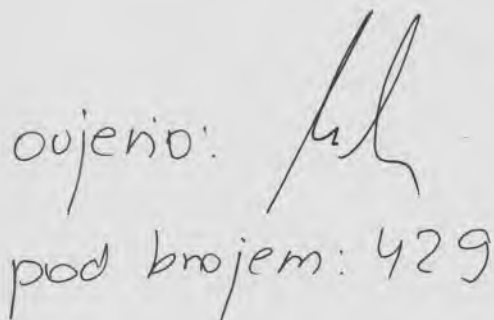 ovjerio:
pod brojem: 429